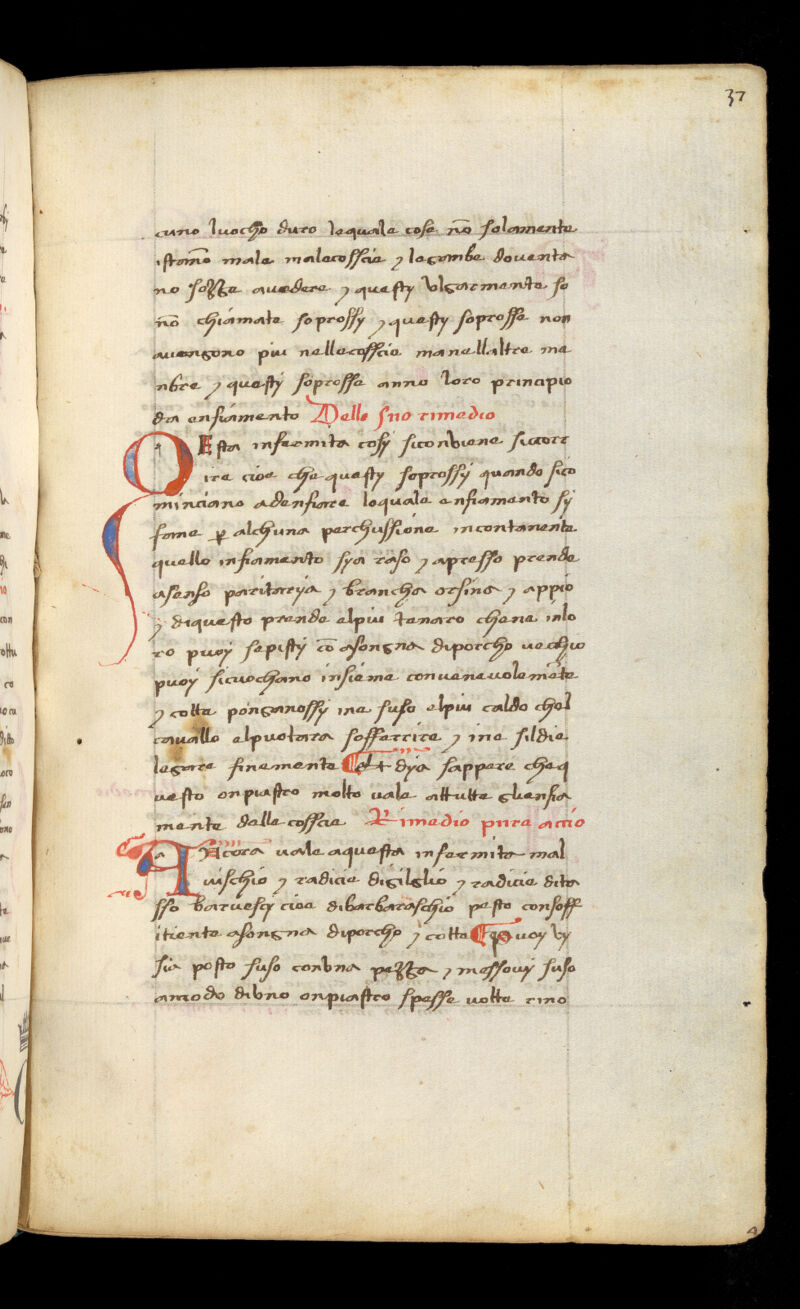 37
cuno luocho duro lequale cose nō solamente
istanō male malecoscie ⁊ legambe doventa
no sozze avedere ⁊ questy vlgarmente so
nō chiamate soprossy ⁊ questy soprosse non
avengono piu nellecoscie manellaltre me
nbre ⁊ questy soprosse anno loro principio
da enfiamento Dello suo rimedio
QEsta infermita cosy siconviene sicorr
ire cioe che questy soprossy quando sico
minciano adenfiare loquale enfiamento sy
fame ꝑ alchuna perchussione incontanente
quello infiamento sya raso ⁊ apresso prende
asenso paritareya ⁊ brancha orsina ⁊ appio
⁊ diquesto prende elpiu tenaro chene inlo
ro puoy sepisty cō asongna diporcho vechio
puoy sicuochano insieme convenevolemēte
⁊ cotte ponganossy ine suso elpiu caldo chel
cavallo elpuotara sofferrire ⁊ ine sildie
legare finemente Et dya sappere cheq
uesto onpiastro molto vale attutte glienfia
mente delle coscie Rimedio pure accio
ANcora vale aquesta infermita mal
vischio ⁊ radicie digilglio ⁊ radicie dita
sso barvescy cioe dibarbaraschio pesto consoff
itiente asongna diporcho ⁊ cotto puoy vy
sia posto suso convna pezza ⁊ messovy suso
amodo divno onpiastro spesse volte rino